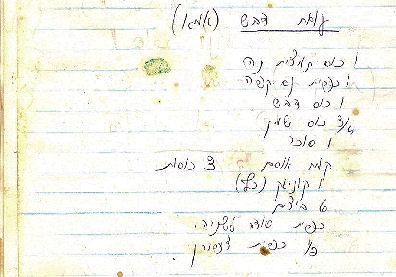 עוגת דבש (אמא)
1 כוס תמצית תה
1 כפית נס קפה
1 כוס דבש
3/4 כוס שמן
1 סוכר
קמח אוסם 3 כוסות
1 קוניאק (כף)
6 ביצים
כפית סודה לשתיה
כפית צפורן